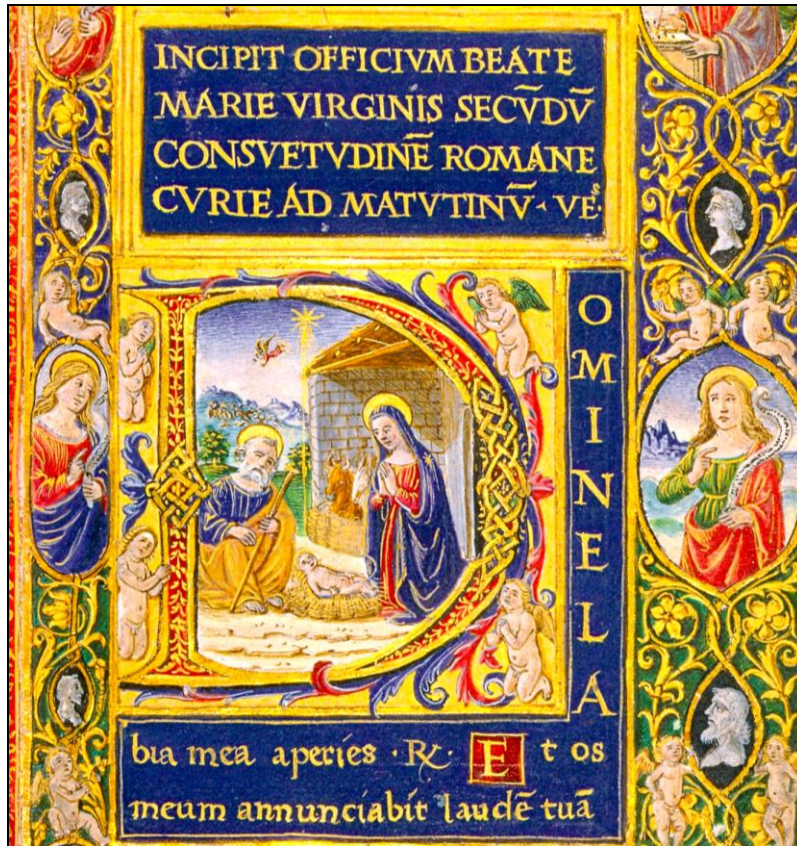 INCIPIT OFFICIVM BEATE
MARIE VIRGINIS SECV̄DV̄
CONSVETVDINĒ ROMANE
CVRIE AD MATVTINV̄ · VEˢ·
D
O
M
I
N
E
L
A
bia mea aperies · ℟ · E t os
meum annunciabit laudē tuā